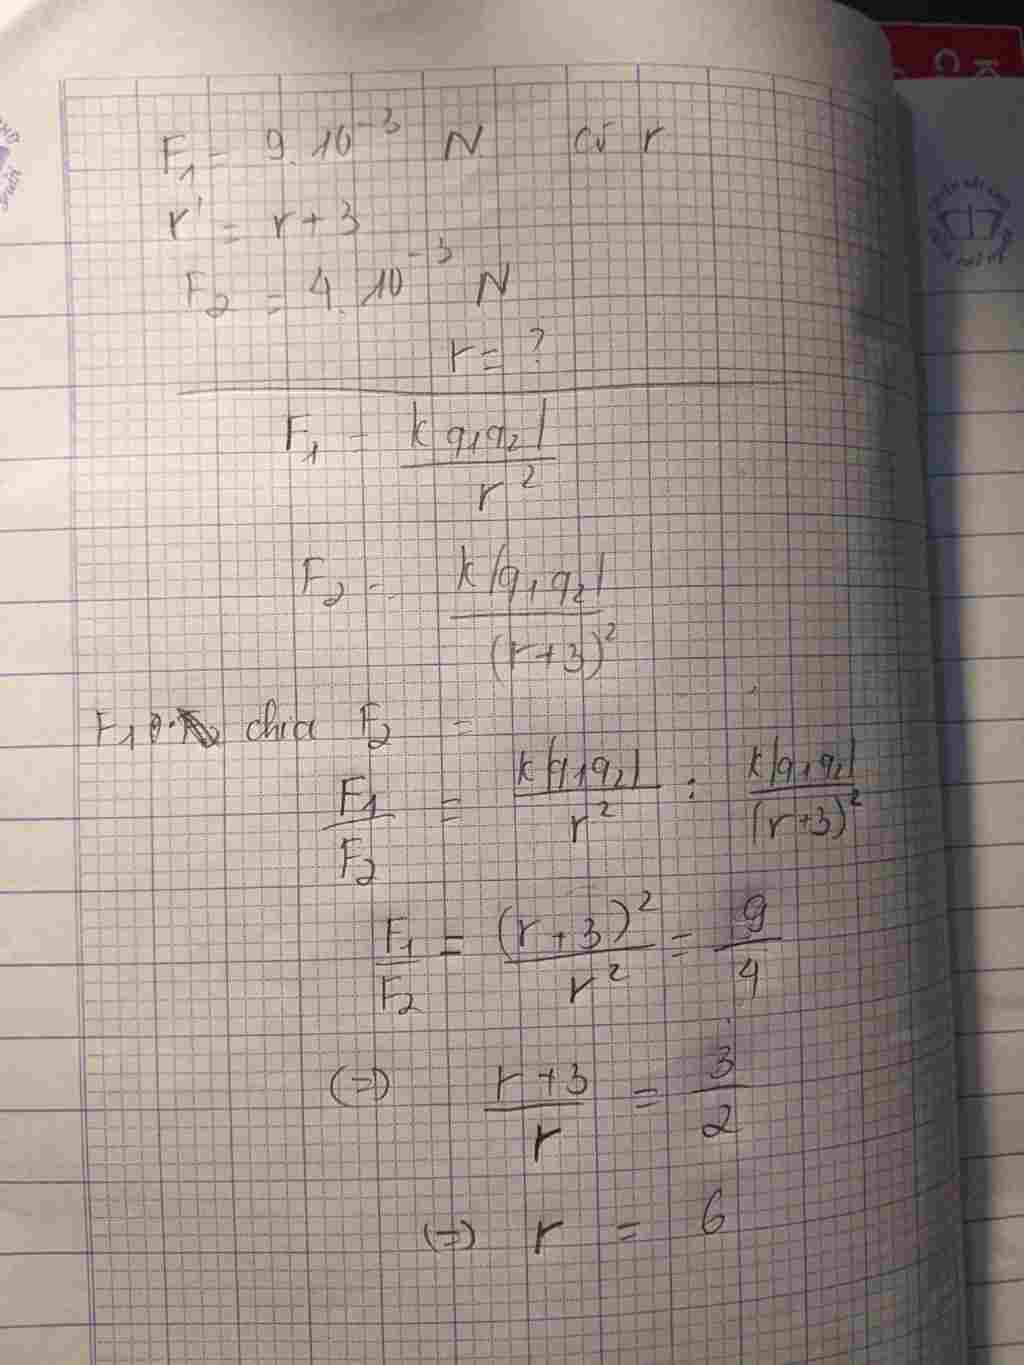 F₁ = 9.10⁻³ N cứ r
r' = r + 3
F₂ = 4.10⁻³ N
r = ?
F₁ = k|q₁q₂| / r²
F₂ = k|q₁q₂| / (r+3)²
F₁ chia F₂ =
F₁/F₂ = k|q₁q₂| / r² : k|q₁q₂| / (r+3)²
F₁/F₂ = (r+3)² / r² = 9/4
(=) (r+3)/r = 3/2
(=) r = 6